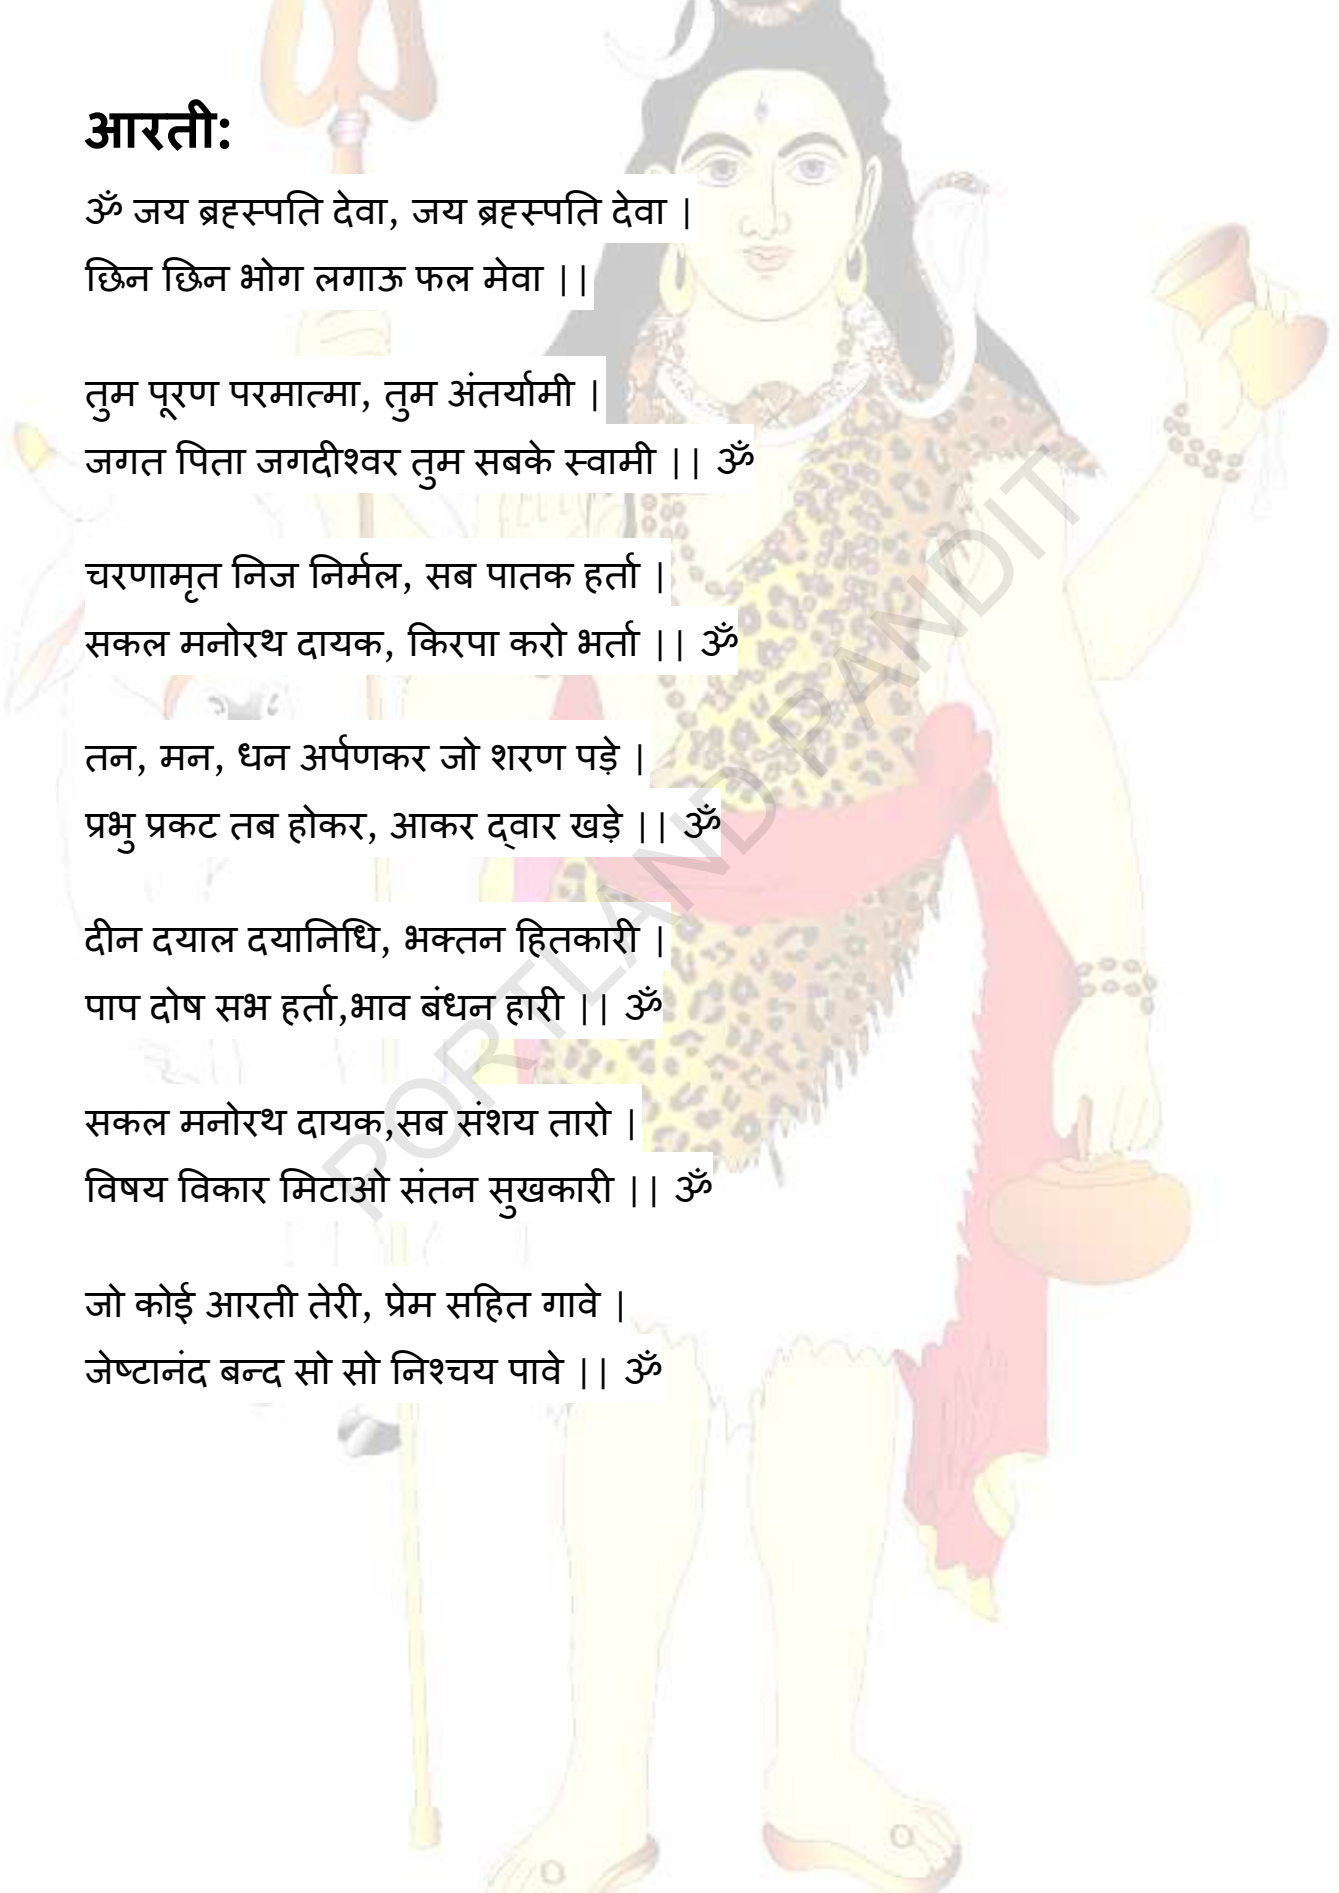 आरती:
ॐ जय ब्रहस्पति देवा, जय ब्रहस्पति देवा |
छिन छिन भोग लगाऊ फल मेवा ||
तुम पूरण परमात्मा, तुम अंतर्यामी |
जगत पिता जगदीश्वर तुम सबके स्वामी || ॐ
चरणामृत निज निर्मल, सब पातक हर्ता |
सकल मनोरथ दायक, किरपा करो भर्ता || ॐ
तन, मन, धन अर्पणकर जो शरण पड़े |
प्रभु प्रकट तब होकर, आकर द्वार खड़े || ॐ
दीन दयाल दयानिधि, भक्तन हितकारी |
पाप दोष सभ हर्ता,भाव बंधन हारी || ॐ
सकल मनोरथ दायक,सब संशय तारो |
विषय विकार मिटाओ संतन सुखकारी || ॐ
जो कोई आरती तेरी, प्रेम सहित गावे |
जेष्टानंद बन्द सो सो निश्चय पावे || ॐ
PORTLAND PANDIT